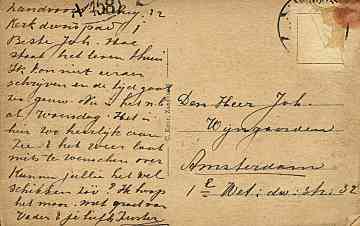 Zandvoort
A 158
12
Kerkdwarspad 1
Beste Joh. Hoe
staat het leven thuis
Ik kon niet eerder
schrijven en de tijd gaat
zoo gauw. Nu is het n.b.
al Woensdag. Het is
hier zoo heerlijk aan
Zee & het weer laat
niets te wenschen over
Kunnen jullie het wel
schikken zoo? Ik hoop
het maar. met groet aan
Vader & je liefh. Zuster
Den Heer Joh.
Wijngaarden
Amsterdam
1e Wet: dw: str: 32